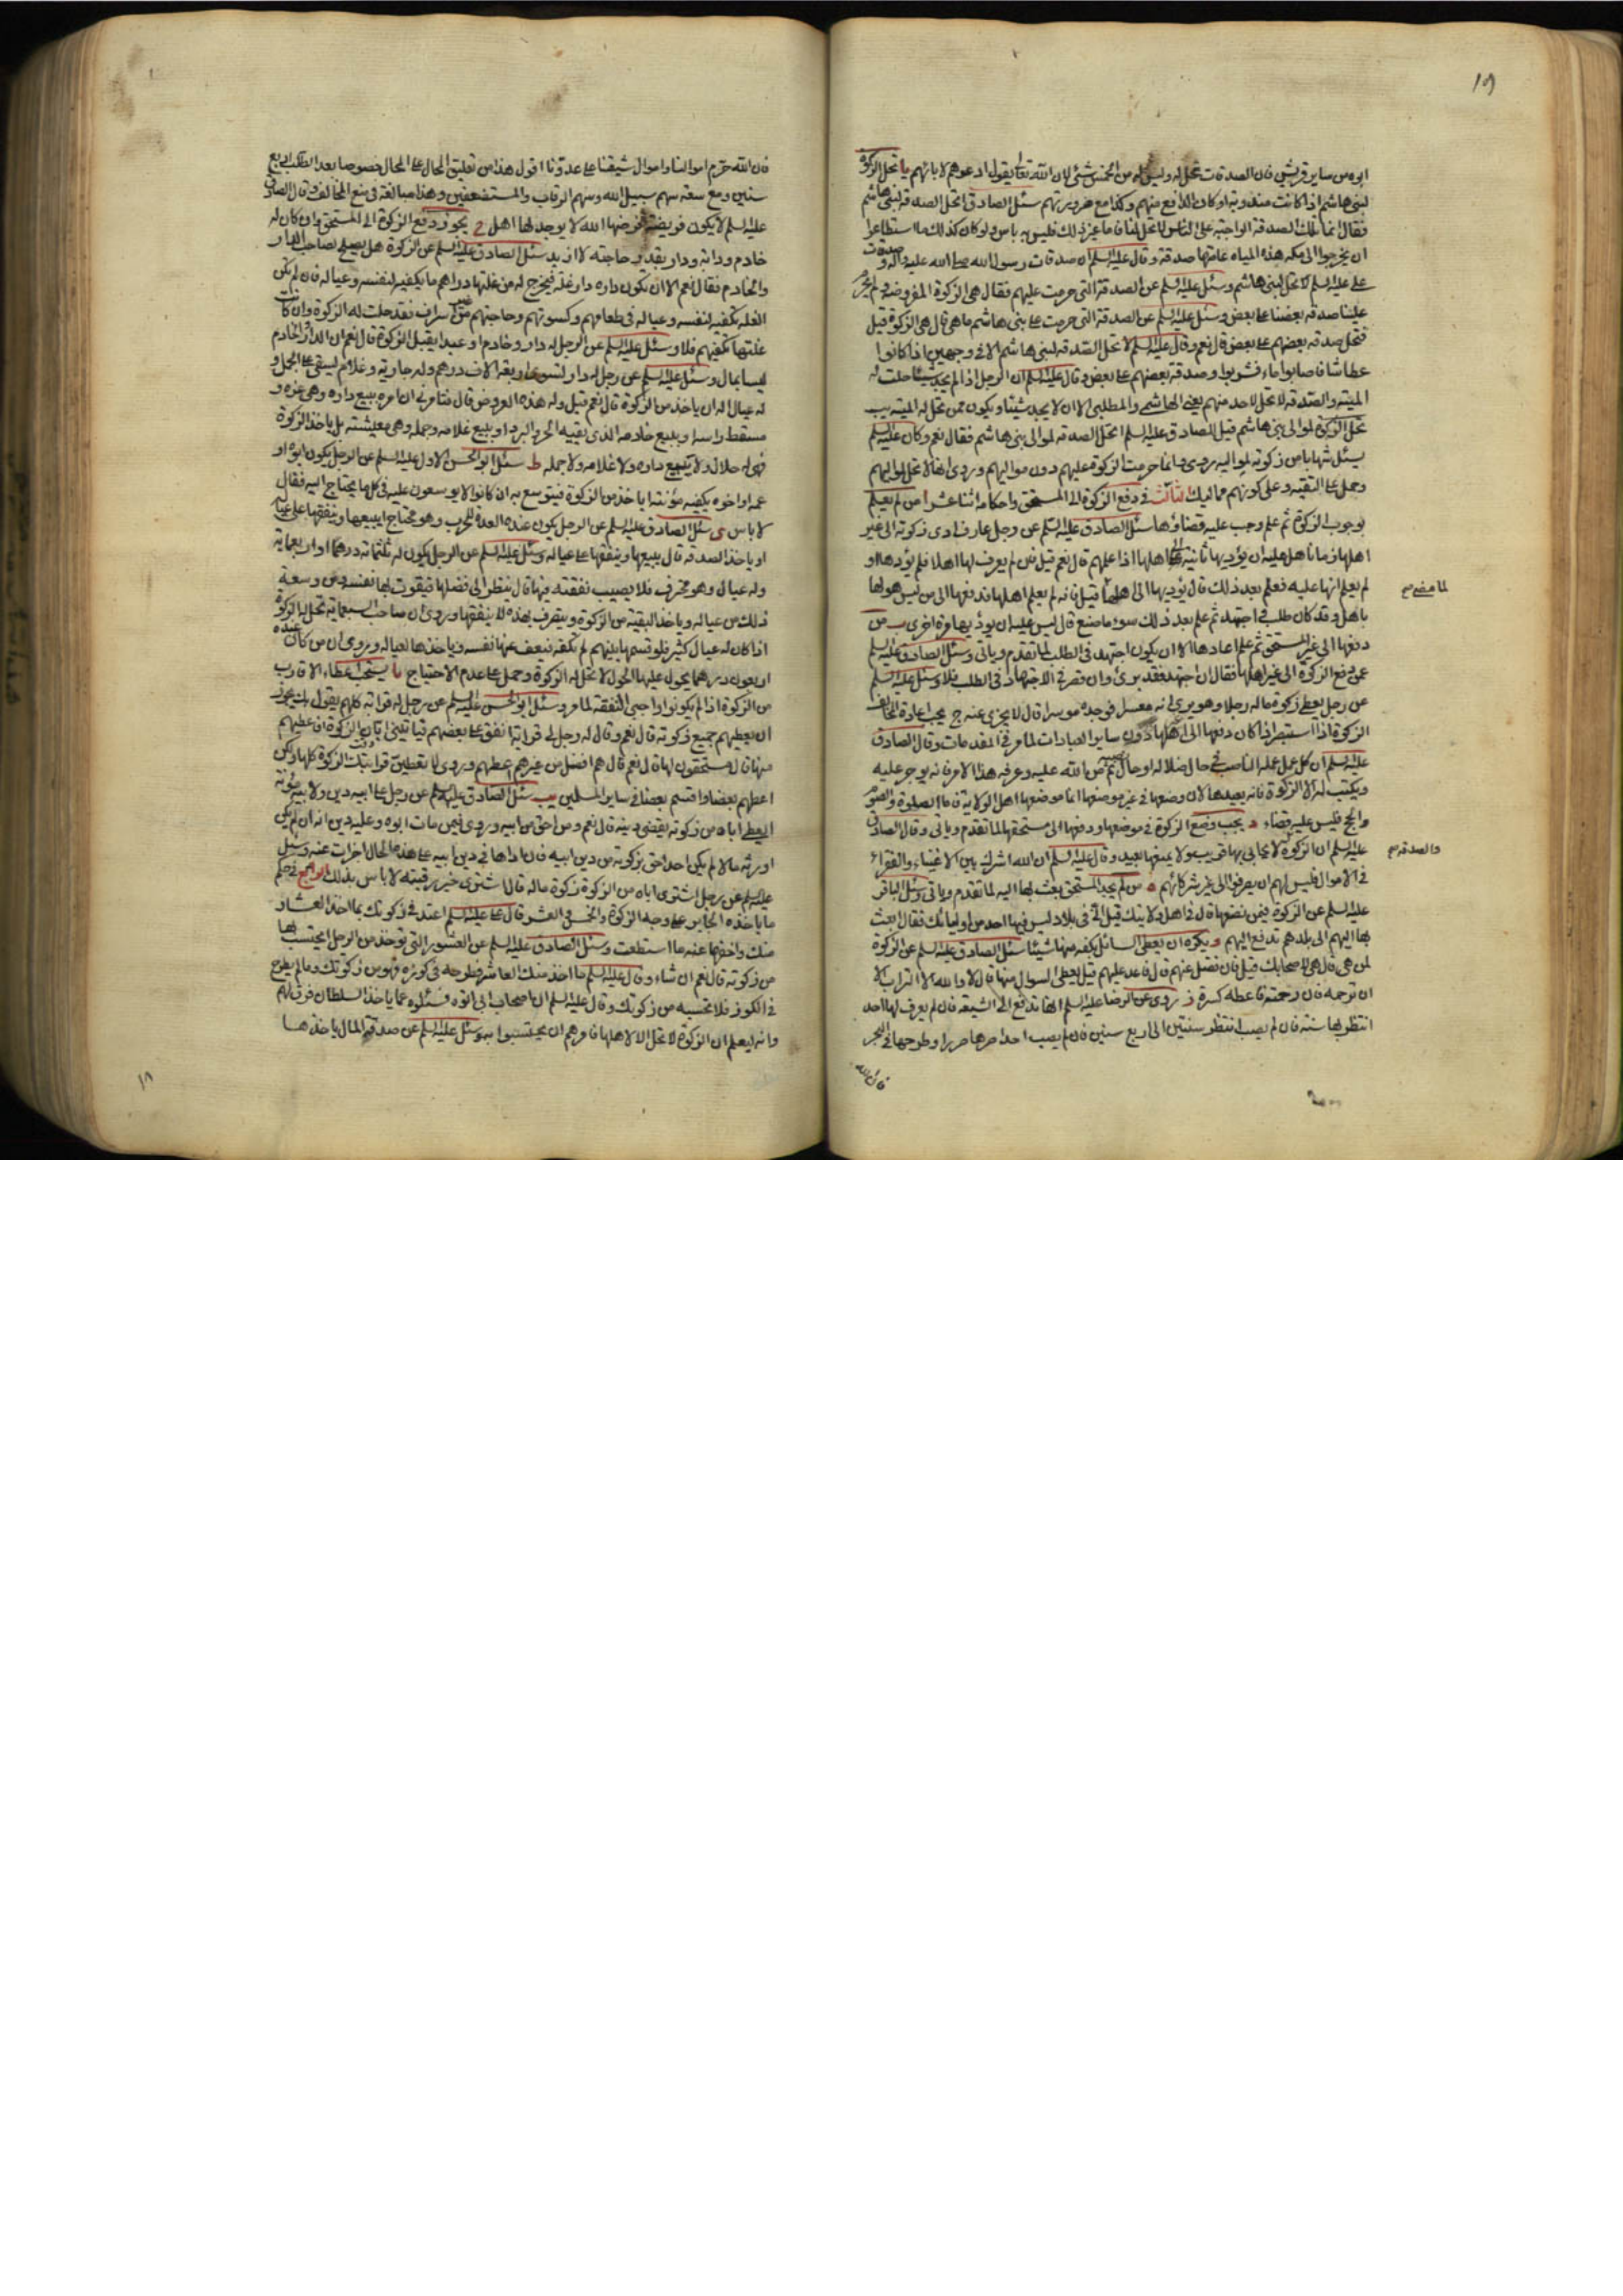 ١٩
ابوه من ساير قريش فان الصدقات تحل له وليس له من الخمس شئ لان الله تعالى يقول ادعوهم لابائهم يا تحل الزكوة
لبنى هاشم اذا كانت مندوبة او كان الدافع منهم وكذا مع ضرورتهم سئل الصادق اتحل الصدقة لبنى هاشم
فقال انما تلك الصدقة الواجبة على الناس لا تحل لنا فاما غير ذلك فليس به باس ولو كان كذلك ما استطاعوا
ان يخرجوا الى مكه هذه المياه عامتها صدقة وقال عليه السلم ان صدقات رسول الله صلى الله عليه واله وصدقات
على عليه السلم لا تحل لبنى هاشم وسئل عليه السلم عن الصدقة التى حرمت عليهم فقال هى الزكوة المفروضة ولم يحرم
علينا صدقة بعضنا على بعض وسئل عليه السلم عن الصدقة التى حرمت على بنى هاشم ما هى قال هى الزكوة قيل
فتحل صدقة بعضهم على بعض قال نعم وقال عليه السلم لا تحل الصدقة لبنى هاشم الا فى وجهين اذا كانوا
عطاشا فاصابوا ماء فشربوا وصدقة بعضهم على بعض وقال عليه السلم ان الرجل اذا لم يجد شيئا حلت له
الميتة والصدقة لا تحل لاحد منهم يعنى الهاشمى والمطلبى الا ان لا يجد شيئا ويكون ممن تحل له الميتة يب
تحل الزكوة لموالى بنى هاشم قيل للصادق عليه السلم اتحل الصدقة لموالى بنى هاشم فقال نعم وكان عليه السلم
يسئل شهابا من زكوته لمواليه وروى وانما حرمت الزكوة عليهم دون مواليهم وروى انها لا تحل لمواليهم
وحمل على التقية وعلى كونهم مماليك الثالث فى دفع الزكوة الى المستحق واحكامه اثنا عشر ا من لم يعلم
بوجوب الزكوة ثم علم وجب عليه قضاؤها سئل الصادق عليه السلم عن رجل عارف ادى زكوته الى غير
اهلها زمانا هل عليه ان يؤديها ثانية الى اهلها اذا علمهم قال نعم قيل فان لم يعرف لها اهلا فلم يؤدها او
لم يعلم انها عليه فعلم بعد ذلك قال يؤديها الى اهلها لما مضى قيل فانه لم يعلم اهلها فدفعها الى من ليس هو لها
لما مضى صح
باهل وقد كان طلب واجتهد ثم علم بعد ذلك سوء ما صنع قال ليس عليه ان يؤديها مرة اخرى ب من
دفعها الى غير المستحق ثم علم اعادها الا ان يكون اجتهد فى الطلب لما تقدم وياتى وسئل الصادق عليه السلم
عمن دفع الزكوة الى غير اهلها فقال ان اجتهد فقد برئ وان قصر فى الاجتهاد فى الطلب فلا وسئل عليه السلم
عن رجل يعطى زكوة ماله رجلا وهو يرى انه معسر فوجده موسرا قال لا يجزى عنه ج يجب اعادة المخالف
الزكوة اذا استبصر اذا كان دفعها الى اهلها دون ساير العبادات لما مر فى المقدمات وقال الصادق
عليه السلم ان كل عمل عمله الناصب فى حال ضلاله او حال نصبه ثم من الله عليه وعرفه هذا الامر فانه يوجر عليه
ويكتب له الا الزكوة فانه يعيدها لانه وضعها فى غير موضعها انما موضعها اهل الولاية فاما الصلوة والصوم
والحج فليس عليه قضاء د يجب وضع الزكوة فى موضعها ودفعها الى مستحقها لما تقدم وياتى وقال الصادق
عليه السلم ان الزكوة لا يحابى بها قريب ولا يمنعها بعيد وقال عليه السلم ان الله اشرك بين الاغنياء والفقراء
والصدقة صح
فى الاموال فليس لهم ان يصرفوا الى غير شركائهم ه من لم يجد المستحق بعث بها اليه لما تقدم وياتى وسئل الباقر
عليه السلم عن الزكوة فيمن نضعها قال فى اهل ولايتك قيل انى فى بلاد ليس فيها احد من اوليائك فقال ابعث
بها اليهم الى بلدهم تدفع اليهم و يكره ان يعطى السائل بكفه منها شيئا سئل الصادق عليه السلم عن الزكوة
لمن هى قال هى لاصحابك قيل فان فضل عنهم قال فاعد عليهم قيل يعطى السوال منها قال لا والله الا التراب الا
ان ترحمه فان رحمته فاعطه كسرة ز روى عن الرضا عليه السلم انها تدفع الى الشيعة فان لم يعرف لها احد
انتظر بها سنة فان لم يصب انتظر سنتين الى اربع سنين فان لم يصب احدا صرها صررا وطرحها فى البحر
فان الله
فان الله حرم اموالنا واموال شيعتنا على عدونا اقول هذا من تعليق المحال على المحال خصوصا بعد الطلب اربع
سنين ومع سعة سهم سبيل الله وسهم الرقاب والمستضعفين وهذا مبالغة فى منع المخالف وقال الصادق
عليه السلم لا يكون فريضة فرضها الله لا يوجد لها اهل ح يجوز دفع الزكوة الى المستحق وان كان له
خادم ودابة ودار بقدر حاجته لا ازيد سئل الصادق عليه السلم عن الزكوة هل يصلح لصاحب الدار
والخادم فقال نعم الا ان يكون داره دار غلة فيخرج له من غلتها دراهم ما يكفيه لنفسه وعياله فان لم تكن
الغلة تكفيه لنفسه وعياله فى طعامهم وكسوتهم وحاجتهم من غير اسراف فقد حلت له الزكوة وان كانت
غلتها تكفيهم فلا وسئل عليه السلم عن الرجل له دار وخادم او عبد ايقبل الزكوة قال نعم ان الدار والخادم
ليسا بمال وسئل عليه السلم عن رجل له دار تسوى اربعة الاف درهم وله جارية وغلام يستقى على الجمل و
له عيال اله ان ياخذ من الزكوة قال نعم قيل وله هذه العروض قال فتامرنى ان امره ببيع داره وهى عزه و
مسقط راسه او ببيع خادمه الذى يقيه الحر والبرد او ببيع غلامه وجمله وهى معيشته بل ياخذ الزكوة
فهى له حلال ولا يبيع داره ولا غلامه ولا جمله ط سئل ابو الحسن الاول عليه السلم عن الرجل يكون ابوه او
عمه او اخوه يكفيه مؤنته اياخذ من الزكوة فيتوسع به ان كانوا لا يوسعون عليه فى كل ما يحتاج اليه فقال
لا باس ى سئل الصادق عليه السلم عن الرجل يكون عنده العدة للحرب وهو محتاج ايبيعها وينفقها على عياله
او ياخذ الصدقة قال يبيعها وينفقها على عياله وسئل عليه السلم عن الرجل يكون له ثلثمائة درهم او اربعمائة
وله عيال وهو محترف فلا يصيب نفقته فيها قال ينظر الى فضلها فيقوت بها نفسه ومن وسعه
ذلك من عياله وياخذ البقية من الزكوة ويتصرف بهذه لا ينفقها وروى ان صاحب السبعمائة تحل له الزكوة
اذا كان له عيال كثير فلو قسمها بينهم لم تكفه فيعف عنها نفسه وياخذها لعياله وروى ان من كان عنده
اربعون درهما يحول عليها الحول لا تحل له الزكوة وحمل على عدم الاحتياج يا يستحب اعطاء الاقارب
من الزكوة اذا لم يكونوا واجبى النفقة لما مر وسئل ابو الحسن عليه السلم عن رجل له قرابة كلهم يقول بك يجوز
ان يعطيهم جميع زكوته قال نعم وقال له رجل لى قرابة انفق على بعضهم فياتينى ابان الزكوة افاعطيهم
منها قال مستحقون لها قال نعم قال هم افضل من غيرهم اعطهم وروى لا تعطين قرابتك الزكوة كلها ولكن
اعطهم بعضا واقسم بعضا فى ساير المسلمين يب سئل الصادق عليه السلم عن رجل على ابيه دين ولابيه مؤنة
ايعطى اباه من زكوته يقضى دينه قال نعم ومن احق من ابيه وروى فيمن مات ابوه وعليه دين انه ان لم يكن
اورثه مالا لم يكن احد احق بزكوته من دين ابيه فان اداها فى دين ابيه على هذه الحال اجزات عنه وسئل
عليه السلم عن رجل اشترى اباه من الزكوة زكوة ماله قال اشترى خير رقبة لا باس بذلك الرابع فى حكم
ما ياخذه الجابر على وجه الزكوة والخمس والعشر قال على عليه السلم اعتد فى زكوتك بما اخذ العشار
منك واخفها عنه ما استطعت وسئل الصادق عليه السلم عن العشور التى توخذ من الرجل ايحتسب بها
من زكوته قال نعم ان شاء وقال عليه السلم ما اخذ منك العاشر فطرحه فى كوزه فهو من زكوتك وما لم يطرح
فى الكوز فلا تحتسبه من زكوتك وقال عليه السلم ان اصحاب ابى اتوه فسئلوه عما ياخذ السلطان فرق لهم
وانه ليعلم ان الزكوة لا تحل الا لاهلها فامرهم ان يحتسبوا به وسئل عليه السلم عن صدقة المال ياخذها
١٨